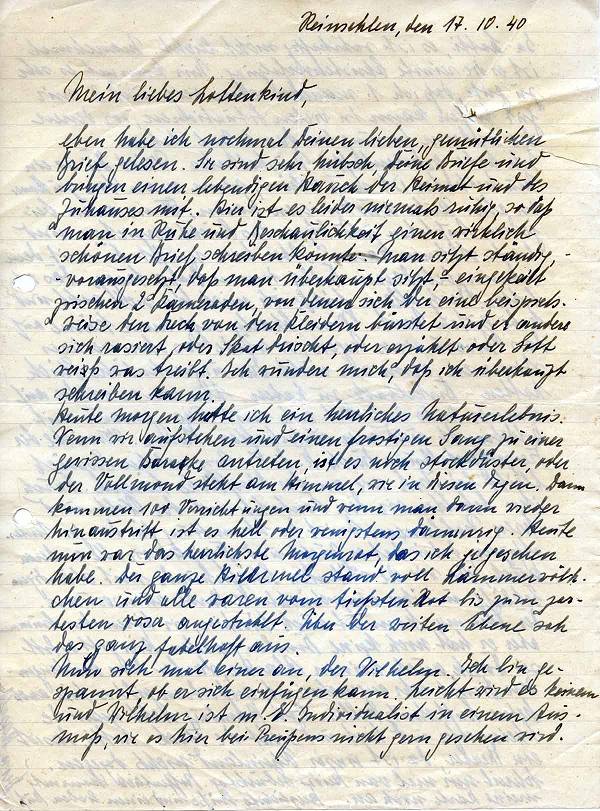 Reinsehlen, den 17.10.40
Mein liebes Lottenkind,
eben habe ich nochmal Deinen lieben, gemütlichen
Brief gelesen. Sie sind sehr hübsch, Deine Briefe und
bringen einen lebendigen Hauch der Heimat und des
Zuhauses mit. Hier ist es leider niemals ruhig, so daß
man in Ruhe und Beschaulichkeit einen wirklich
schönen Brief schreiben könnte. Man sitzt ständig,
- vorausgesetzt, daß man überhaupt sitzt, - eingekeilt
zwischen 2 Kameraden, von denen sich der eine beispiels-
weise den Dreck von den Kleidern bürstet und der andere
sich rasiert, oder Skat drischt, oder erzählt oder Gott
weiß was treibt. Ich wundere mich, daß ich überhaupt
schreiben kann.
Heute morgen hatte ich ein herrliches Naturerlebnis.
Wenn wir aufstehen und einen frostigen Gang zu einer
gewissen Baracke antreten, ist es noch stockduster, oder
der Vollmond steht am Himmel, wie in diesen Tagen. Dann
kommen 100 Verrichtungen und wenn man dann wieder
hinaustritt ist es hell oder wenigstens dämmrig. Heute
nun war das herrlichste Morgenrot, das ich je gesehen
habe. Der ganze Himmel stand voll Lämmerwölk-
chen und alle waren vom tiefsten Rot bis zum zar-
testen rosa angestrahlt. Über der weiten Ebene sah
das ganz fabelhaft aus.
Nun sich mal einer an, der Wilhelm. Ich bin ge-
spannt, ob er sich einfügen kann. Leicht wird es keinem
und Wilhelm ist m. E. Individualist in einem Aus-
maß, wie es hier bei Preußens nicht gern gesehen wird.